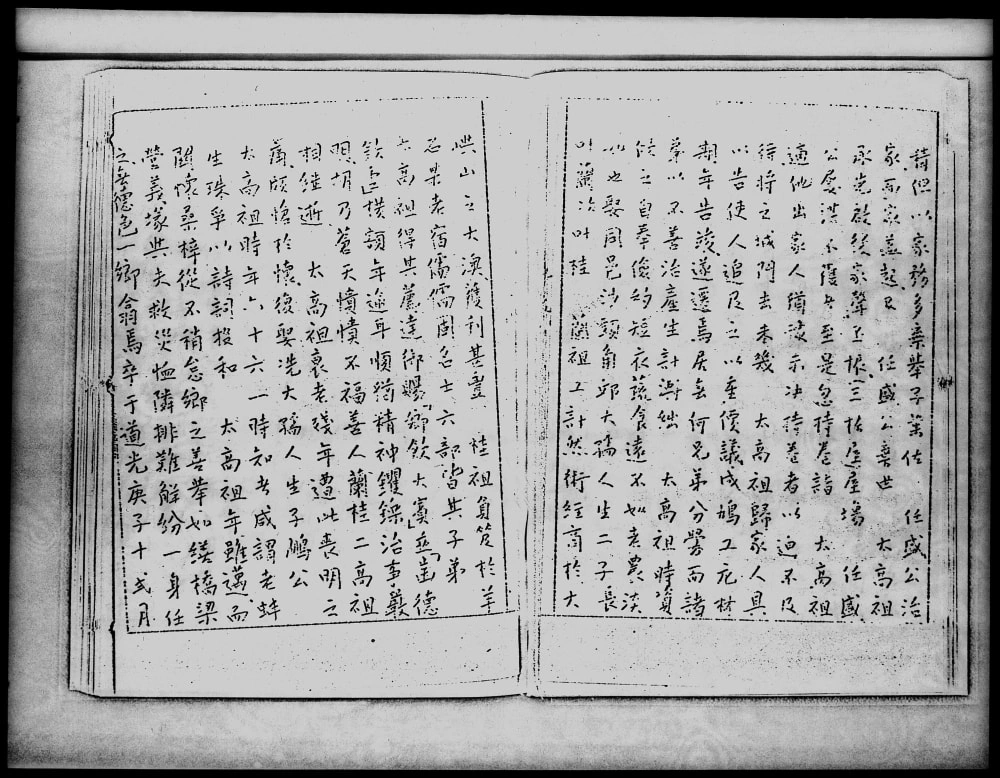 積但以家務多棄舉子業佐 任盛公治
家而家益起及 任盛公棄世 太高祖
承先啟後家聲丕振三板崖屋場 任盛
公屢謀不獲者至是忽持卷詣 太高祖
適他出家人猶未決持卷者以迫不及
待將之城門去未幾 太高祖歸家人具
以告使人追及之以重價議成鳩工庀材
期年告竣遂遷焉居無何兄弟分爨而諸
弟以不善治產生計漸絀 太高祖時負
給之自奉儉約短衣蔬食遠不如老農淡
如也娶同邑沙頭角邱大孺人生二子長
叶蘭次叶桂 蘭祖工計然術經商於大
嶼山之大澳獲利甚豐 桂祖負笈於羊
石果老宿儒儒園名士六部皆其子弟
太高祖得其薦達鄉賜「鄉飲大賓」「垂齒德
欽」匾橫額年逾耳順猶精神矍鑠治事嚴
明胡乃蒼天憒憒不福善人蘭桂二高祖
相繼逝 太高祖衰老殘年遭此喪明之
痛頗愴於懷復娶冼大孺人生子鵬公
太高祖時年六十六一時知者咸謂老蚌
生珠爭以詩詞投和 太高祖年雖邁而
關懷桑梓從不稍怠鄉之善舉如繕橋梁
營義塚與夫救災恤隣排難解紛一身任
之無德色一鄉翕焉卒于道光庚子十弍月